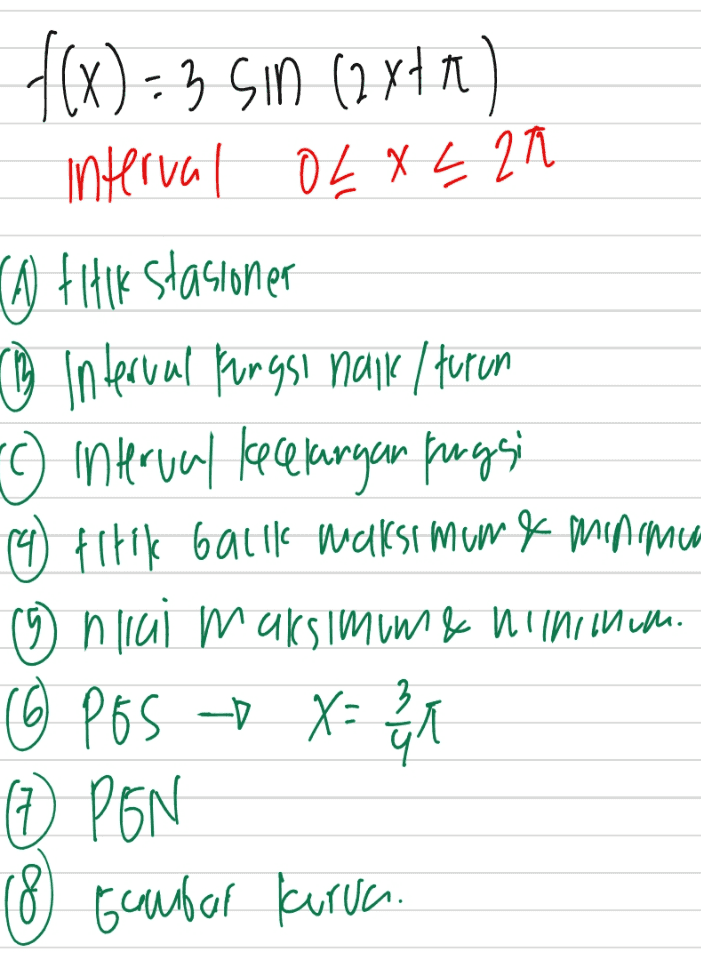 f(x) = 3 sin (2x+π)
interval 0 ≤ x ≤ 2π
(A) titik stasioner
(B) Interval fungsi naik / turun
(C) interval kecekungan fungsi
(4) titik balik maksimum & minimu
(5) nilai maksimum & minimum.
(6) PGS → x = 3/4 π
(7) PGN
(8) Gambar kurva.